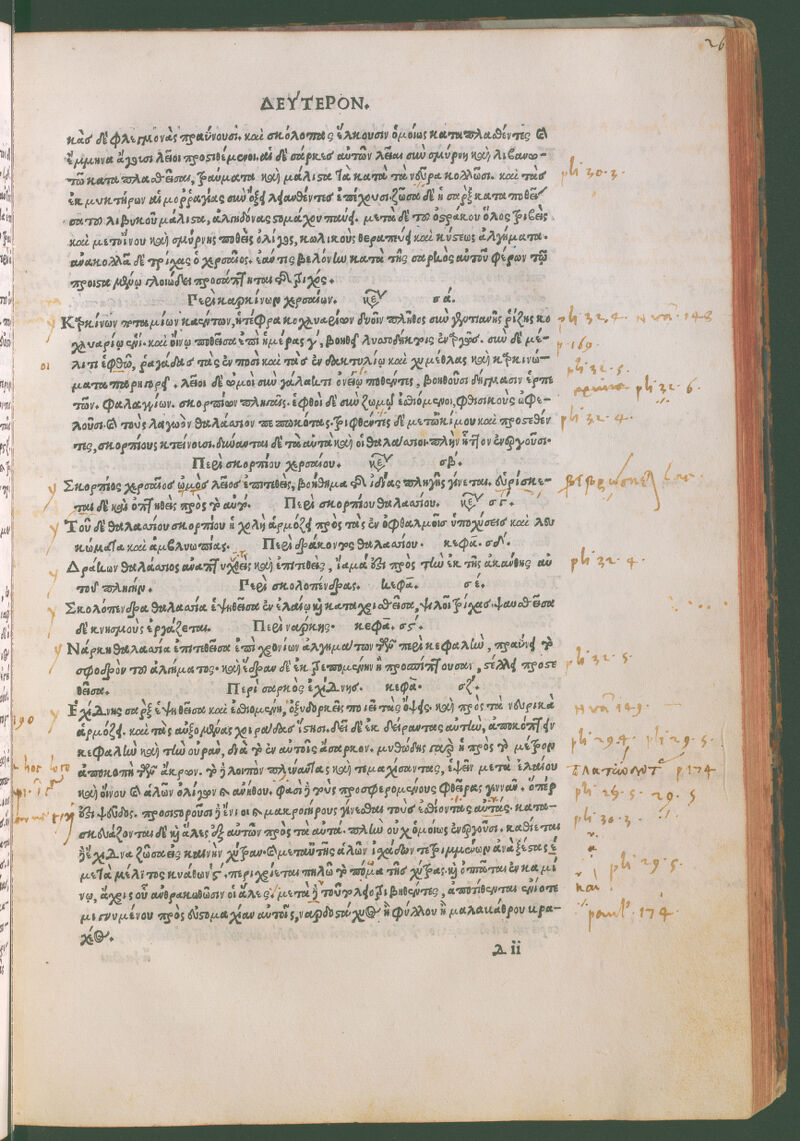 26
ΔΕΥΤΕΡΟΝ.
κὰς δὲ φλεγμονὰς πραΰνουσι. καὶ σκόλοπας ἕλκουσιν ὁμοίως καταπλασθέντες καὶ
ἔμμηνα ἄγουσι λεῖοι προστιθέμενοι. αἱ δὲ σάρκες αὐτῶν λεῖαι σὺν σμύρνῃ καὶ λιβανω-
τῷ καταπλασθεῖσαι, τραύματα καὶ μάλιστα τὰ κατὰ τὰ νεῦρα κολλῶσι. καὶ τὰς
pli 30.3.
ἐκ μυκτήρων αἱμορραγίας σὺν ὄξει λεανθέντες ἐπέχουσι. ζῶσα δὲ ἡ σὰρξ καταποθεῖ-
σα τοῦ λιβυκοῦ μάλιστα, ἀλγηδόνας στομάχου παύει. μετὰ δὲ τοῦ ὀστράκου ὅλος τριβεὶς
καὶ μετ οἴνου καὶ σμύρνης ποθεὶς ὀλίγος, κωλικοὺς θεραπεύει καὶ κύστεως ἀλγήματα.
ἀνακολλᾷ δὲ τρίχας ὁ χερσαῖος. ἐάν τις βελόνην κατὰ τῆς σαρκὸς αὐτοῦ φέρων τῷ
προισταμένῳ γλοιώδει προσάπτηται τῆς τριχός.
Περὶ καρκίνων χερσαίων. κεφ σά.
Καρκίνων ποταμίων καέντων, ἡ τέφρα κοχλιαρίων δυοῖν πλῆθος σὺν γεντιανῆς ῥίζης κο
pli 32.4.
χλιαρίῳ ἑνὶ. καὶ οἴνῳ ποθεῖσα ἐπὶ ἡμέρας γ', βοηθεῖ λυσσοδήκτοις ἐνεργῶς. σὺν δὲ μέ-
λιτι ἑφθῷ, ῥαγάδας τὰς ἐν ποσὶ καὶ τὰς ἐν δακτυλίῳ καὶ χιμέθλας καὶ καρκινώ-
pli 32.5.
ματα παρηγορεῖ. λεῖοι δὲ ὠμοὶ σὺν γάλακτι ὀνείῳ ποθέντες, βοηθοῦσι δήγμασιν ἑρπε
pli 32.6
τῶν. φαλαγγίων. σκορπίων πληγαῖς. ἑφθοὶ δὲ σὺν ζωμῷ ἐσθιόμενοι, φθισικοὺς ὠφε-
λοῦσι. καὶ τοὺς λαγωὸν θαλάσσιον πεπωκότας. τριφθέντες δὲ μετ ὠκίμου καὶ προστεθέν
pli 32.4.
τες, σκορπίους κτείνουσι. δύνανται δὲ τὰ αὐτὰ καὶ οἱ θαλάσσιοι. πλὴν ἧττον ἐνεργοῦσι.
Περὶ σκορπίου χερσαίου. κεφ σβ'.
Σκορπίος χερσαῖος ὠμὸς λεῖος ἐπιτεθεὶς, βοήθημα τῆς ἰδίας πληγῆς γίνεται. εὑρίσκε-
ται δὲ καὶ ὀπτηθεὶς πρὸς τὸ αὐτό. Περὶ σκορπίου θαλασσίου. κεφ σγ'.
Τοῦ δὲ θαλασσίου σκορπίου ἡ χολὴ ἁρμόζει πρὸς τὰς ἐν ὀφθαλμοῖς ὑποχύσεις καὶ λευ
κώματα καὶ ἀμβλυωπίας. Περὶ δράκοντος θαλασσίου. κεφα. σδ'.
Δράκων θαλάσσιος ἀναπτυχθεὶς καὶ ἐπιτεθεὶς, ἴαμά ἐστι πρὸς τὴν ἐκ τῆς ἀκάνθης αὐ
pli 32.4.
τοῦ πληγήν. Περὶ σκολοπένδρας. κεφα. σέ.
Σκολόπενδρα θαλασσία ἑψηθεῖσα ἐν ἐλαίῳ καὶ καταχρισθεῖσα, ψιλοῖ τρίχας. ψαυσθεῖσα
δὲ κνησμοὺς ἐργάζεται. Περὶ νάρκης. κεφα. σς'.
Νάρκη θαλασσία ἐπιτιθεῖσα ἐπὶ χρονίων ἀλγημάτων τῶν περὶ κεφαλὴν, πραΰνει τὸ
σφοδρὸν τοῦ ἀλγήματος. καὶ ἕδραν δὲ ἐκτρεπομένην ἢ προσπίπτουσαν, στέλλει προστε
pli 32.5.
θεῖσα. Περὶ σαρκὸς ἐχίδνης. κεφα. σζ'.
Ἐχίδνης σὰρξ ἑψηθεῖσα καὶ ἐσθιομένη, ὀξυδορκεῖς ποιεῖ τὰς ὄψεις. καὶ πρὸς τὰ νευρικὰ
ἁρμόζει. καὶ τὰς αὐξομένας χοιράδας ἵστησι. δεῖ δὲ ἐκδείραντας αὐτὴν, ἀποκόπτειν
κεφαλὴν καὶ τὴν οὐρὰν, διὰ τὸ ἐν αὐτοῖς ἄσαρκον. μυθώδης γὰρ ἡ πρὸς τὸ μέτρον
pli 29.4. pli 29.5.
ἀποκοπὴ τῶν ἄκρων. τὸ λοιπὸν πλύναντας καὶ τεμαχίσαντας, ἑψεῖν μετὰ ἐλαίου
p 174
καὶ οἴνου καὶ ἁλῶν ὀλίγων καὶ ἀνήθου. φασὶ τοὺς προσφερομένους φθεῖρας γεννᾶν. ὅπερ
pli 29.5. 29.5
ἐστὶ ψεῦδος. προσιστοροῦσι ἔνιοι καὶ μακρογήρους γίνεσθαι τοὺς ἐσθίοντας αὐτάς. κατα-
pli 30.3.
σκευάζονται δὲ καὶ ἅλες ἐξ αὐτῶν πρὸς τὰ αὐτὰ. πλὴν οὐχ ὁμοίως ἐνεργοῦσι. καθίεται
ἡ ἔχιδνα ζῶσα εἰς καινὴν χύτραν. καὶ μετ αὐτῆς ἁλῶν ἰσχάδων τετριμμένων ἀνὰ ξέστας ε
μετὰ μέλιτος κυάθων ς'. περιχρίεται πηλῷ τὸ πῶμα τῆς χύτρας. καὶ ὀπτᾶται ἐν καμί
pli 29.5.
νῳ, ἄχρις οὗ ἀνθρακωθῶσιν οἱ ἅλες. μετὰ τοῦτο λειοτριβηθέντες, ἀποτίθενται ἐνίοτε
μισγομένου πρὸς εὐστομαχίαν αὐτοῖς, ναρδοστάχυος ἢ φύλλου ἢ μαλαβάθρου βρα-
paul. 174.
χέος.
Δ ii